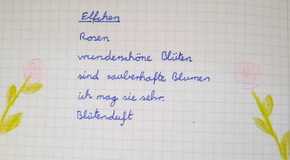 Elfchen
Rosen
wunderschöne Blüten
sind zauberhafte Blumen
ich mag sie sehr.
Blütenduft